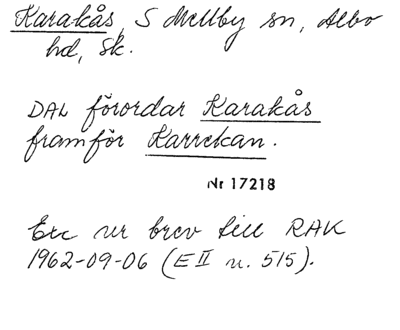 Karakås, S Mellby sn, Albo
hd, Sk.
DAL förordar Karakås
framför Karrekan.
Nr 17218
Exc ur brev till RAK
1962-09-06 (E II u. 515).